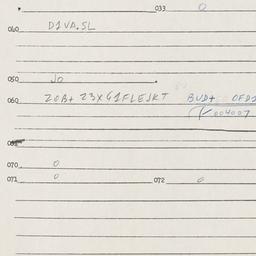 033 0
040 DIVA.SL
050 JO
060 20B+ 23X G1FLEJKT BUD+ OFD
004007
070 0
071 0 072 0